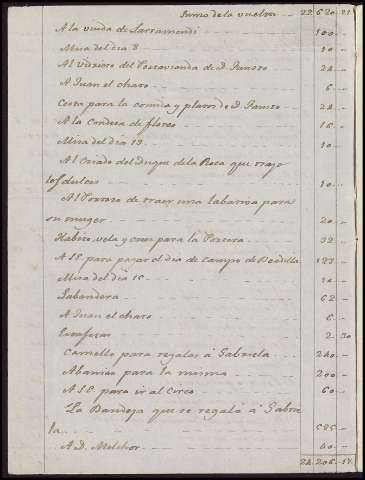 Suma de la vuelta 22.620..21
A la viuda de Larramendi 100 –
Misa del dia 8 10 –
Al Vidriero del de D. 24 –
A Juan el chaso 6 –
Cesta para la comida y platos de D. 24 –
A la Condesa de flores 16 –
Misa del dia 13 10 –
Al Criado del Duque de la Roca que trajo
los dulces 10 –
Al de traer una para
su muger 20 –
Habito, vela y para la 32 –
A S.E. para pagar el dia de campo de Boadilla 123 –
Misa del dia 15 10 –
Labandera 62 –
A Juan el chaso 6 –
2 30
Camello para regalar á Gabriela 240 –
Abanico para la misma 200 –
A S.E. para ir al Circo 60 –
La Bandeja que se regaló á Gabrie
la 585 –
A D. Melchor 40 –
24.206..17